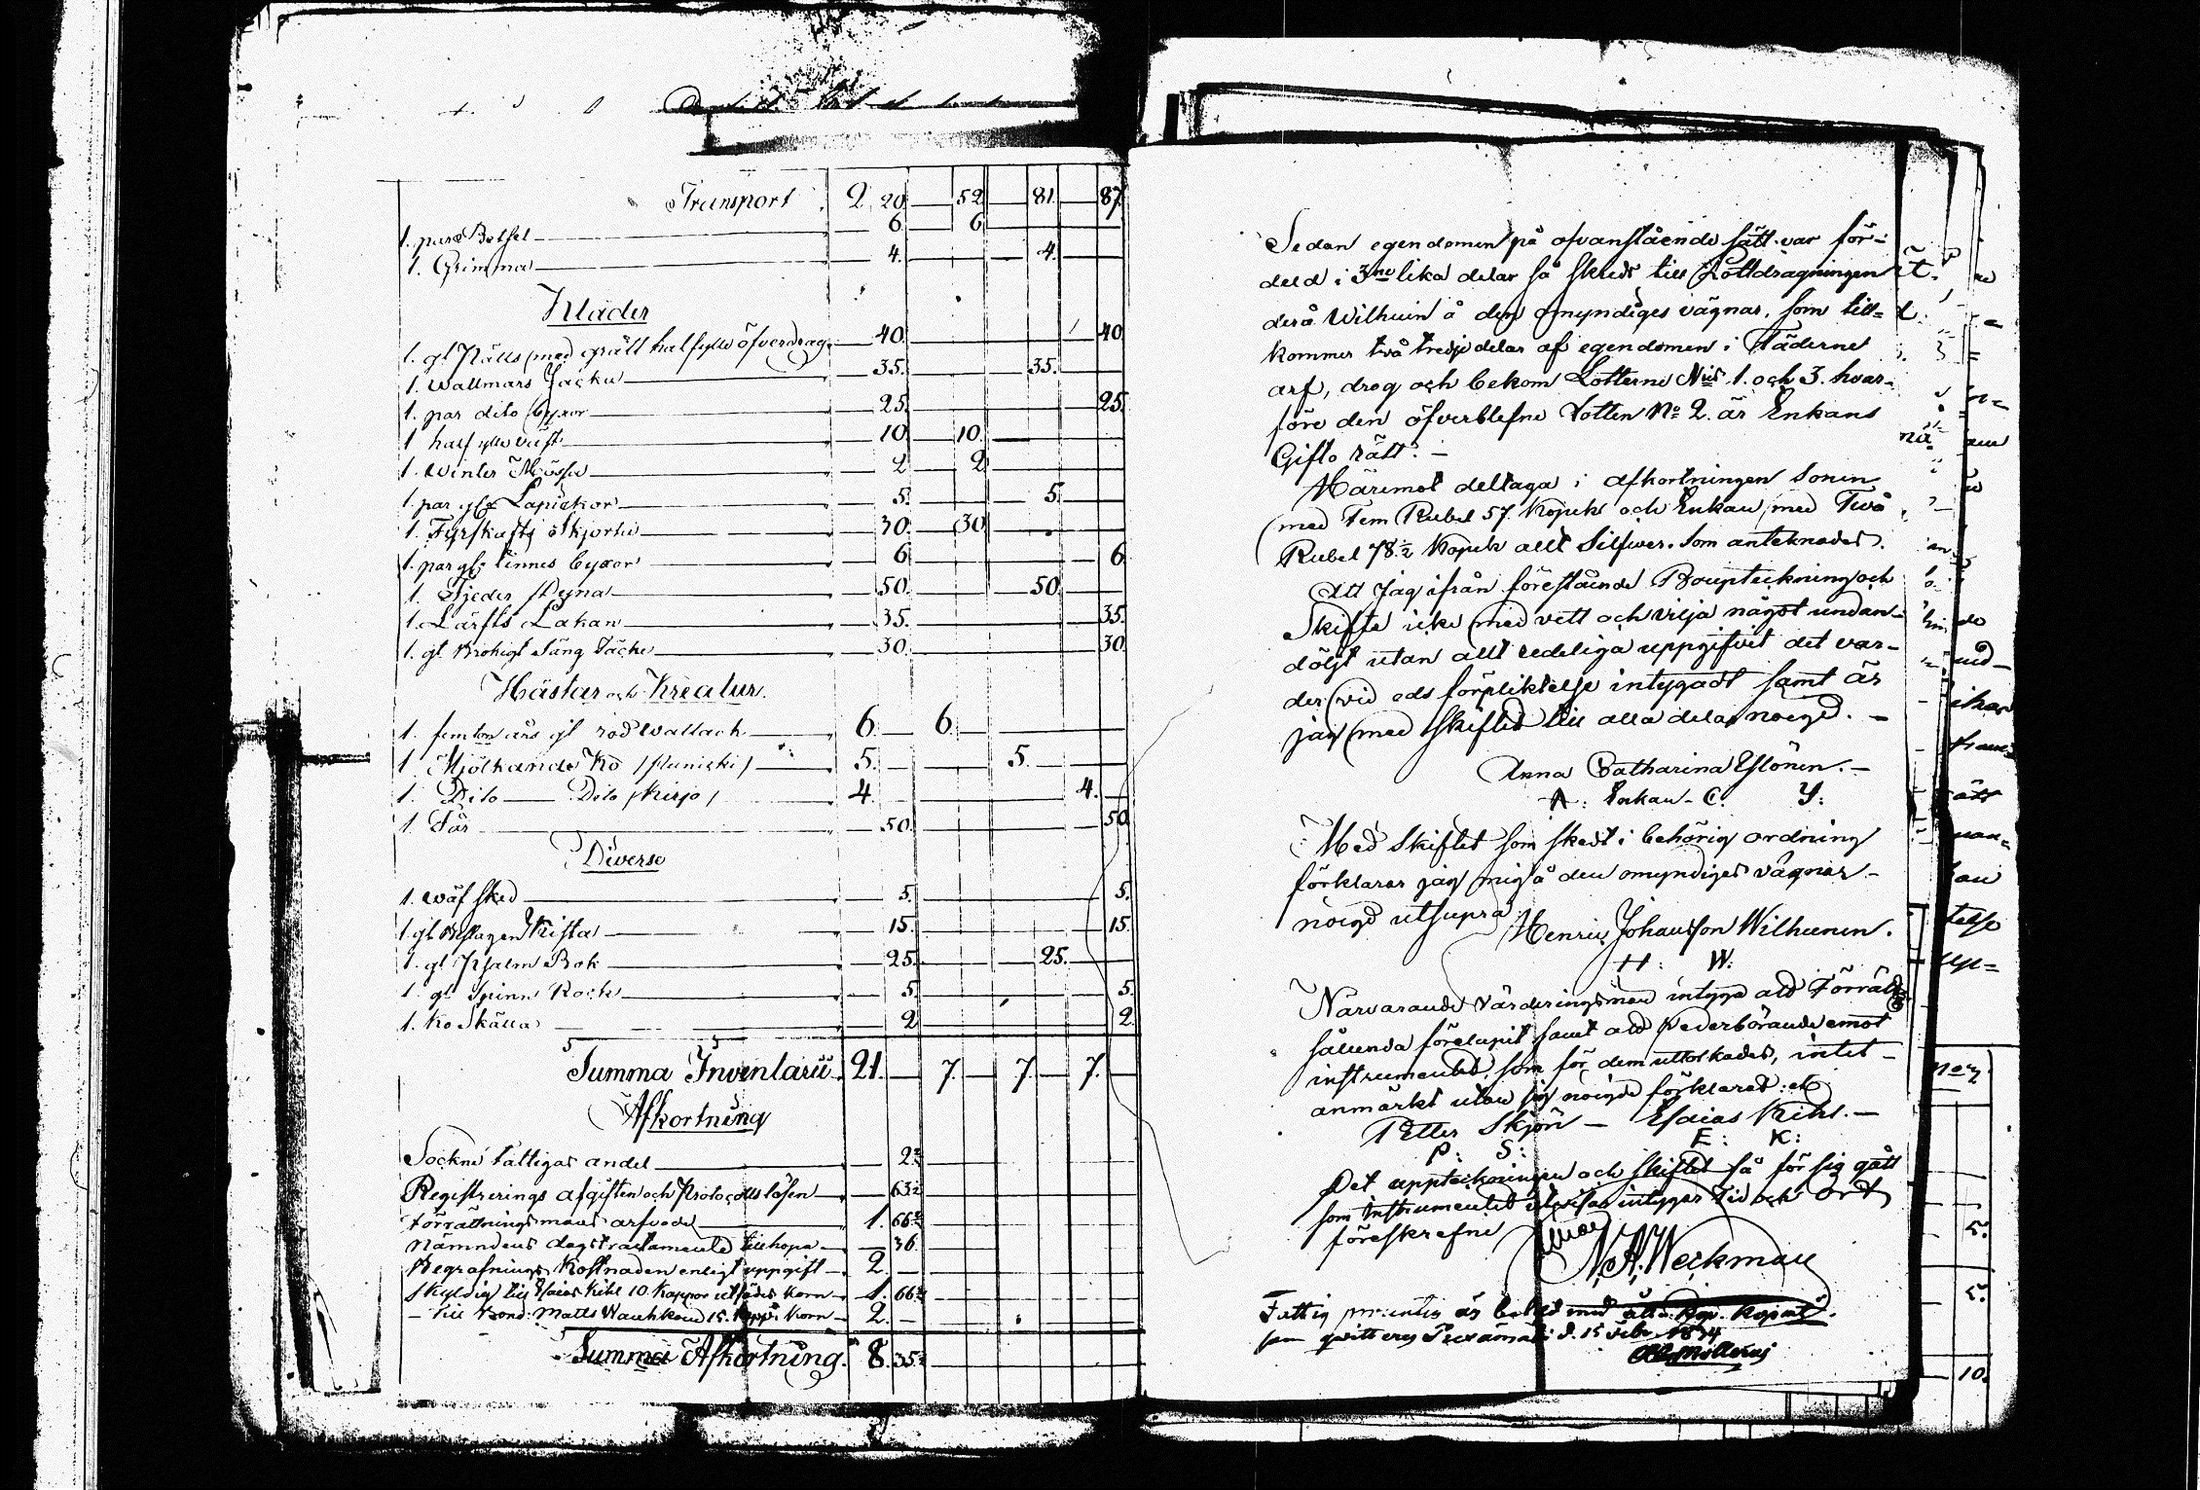 Transport 2 20 52 81. 87
1. par Betsel 6 6
1. Grimma 4. 4.
Kläder
1. gl. Pälts med grått halfylle öfverdrag 40. 40
1. Wallmars Jacka 35. 35.
1. par dito byxor 25. 25.
1 halfylle väst 10. 10.
1. Winter Mössa 2 2
1. par gl. Lapickor 5. 5.
1. Fyrskafts Skjorta 30. 30
1. par gl. linnes byxor 6 6
1. Fjeder Dyna 50. 50.
1. Lärfts Lakan 35. 35.
1. gl. Brokigt Säng Täcke 30. 30
Hästar och Kreatur.
1. femton års gl röd Wallack 6. 6.
1 Mjölkande Ko /Muniki/ 5. 5.
1. Dito Dito /Kirjo/ 4. 4.
1 Får 50. 50
Diverse
1. Wäf sked 5. 5.
1. gl. Beslagen Kista 15. 15.
1. gl. Psalm Bok 25. 25.
1. gl. Spinn Rock 5. 5.
1. Ko Skälla 2 2
Summa Inventarii 21. 7. 7. 7.
Afkortning
Sockne fattigas andel 2½
Registrerings afgiften och Protocolls lösen 63½
Förrättningsmans arfvode 1. 66⅔
Nämndens dagtractamente tillhopa 36.
Begrafnings Kostnaden enligt uppgift 2.
Skyldig till Esaias Kihl 10. Kappor utsädes Korn 1. 66⅔
till Bond: Matts 15. Kapp: Korn 2.
Summa Afkortning. 8. 35½
Sedan egendomen på ofvanstående sätt var för-
deld i 3ne lika delar så skreds till Lottdragningen
derå Wilhuin å den omyndiges vägnar, som till-
kommer två tredjedelar af egendomen i Fäderne
arf, drog och bekom Lotterne Nis 1. och 3. hvar-
före den öfverblefne Lotten No 2. är Enkans
Gifto rätt. -
Häremot deltaga i afkortningen Sonen
med Fem Rubel 57. Kopek och Enkan med Två
Rubel 78.½ Kopek allt Silfwer. Som antecknades.
Att jag ifrån förestående Bouppteckning och
Skifte icke med vett och vilja något undan-
döljt utan allt redeliga uppgifvit det var-
der vid eds förpliktelse intygadt samt är
jag med skiftet till alla delar noigd. -
Anna Catharina Eslönen. -
A: Enkan - C. Y:
Med Skiftet som skedt i behörig ordning
förklarar jag mig å den omyndiges vägnar -
noigd utsupra
Henric Johansson Wilhunen.
H: W:
Närvarande Värderingsmän intyga att Förrätt
sålunda förelupit samt att Vederbörande emot
instrumentet, som för dem uttolkades, intet -
anmärkt utan sig noigde förklarat: ut
Petter Skjön - Esaias Kihl. -
P: S: E: K:
Det uppteckningen och skiftet så för sig gått
som Instrumentet utvisar intygar tid och ort
föreskrefne
N. A. Weckman
Fattig procenten är betald med
som qvitteras d. 15 Febr. 1834